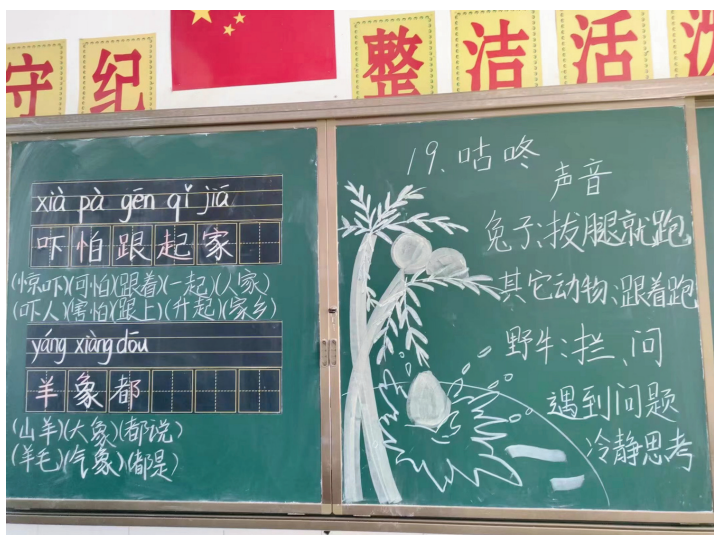 守 纪 整 洁 活
xià pà gēn qǐ jiā
吓 怕 跟 起 家
(惊吓)(可怕)(跟着)(一起)(人家)
(吓人)(害怕)(跟上)(升起)(家乡)
yáng xiàng dōu
羊 象 都
(山羊)(大象)(都说)
(羊毛)(气象)(都是)
19.咕咚
声音
兔子:拔腿就跑
其它动物:跟着跑
野牛:拦、问
遇到问题
冷静思考